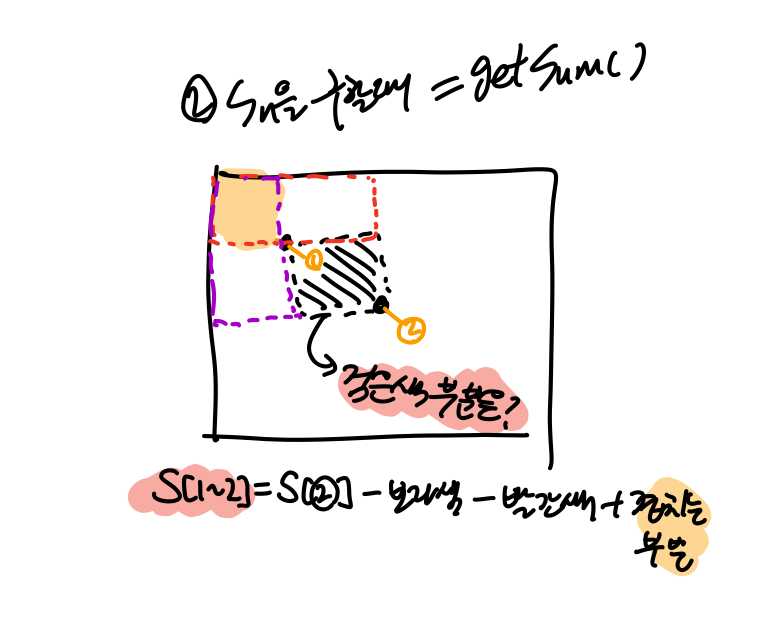 ② Sn을 구할때 = getSum()
①
②
검은색 부분은?
S[1~2] = S[②] - 보라색 - 빨간색 + 겹치는
부분